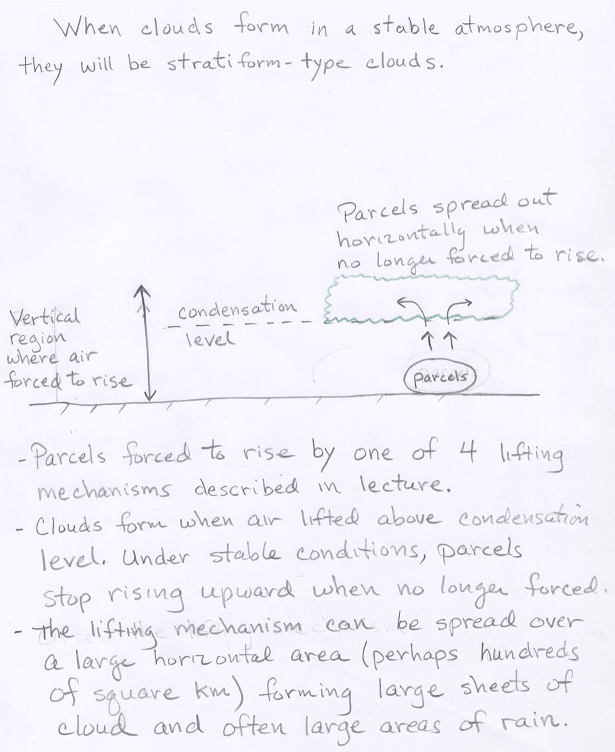 When clouds form in a stable atmosphere,
they will be stratiform-type clouds.
Parcels spread out
horizontally when
no longer forced to rise.
condensation
level
Vertical
region
where air
forced to rise
parcels
- Parcels forced to rise by one of 4 lifting
mechanisms described in lecture.
- Clouds form when air lifted above condensation
level. Under stable conditions, parcels
stop rising upward when no longer forced.
- the lifting mechanism can be spread over
a large horizontal area (perhaps hundreds
of square km) forming large sheets of
cloud and often large areas of rain.